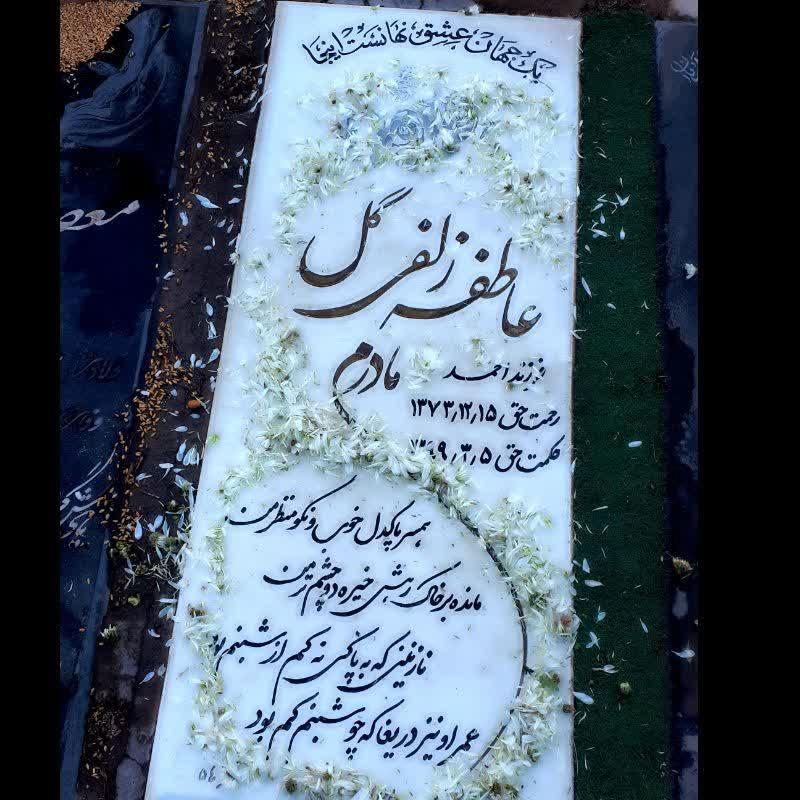 یک جهان عشق نهانست اینجا
عاطفه زلفی گل
فرزند احمد
مادرم
رحمت حق ۱۳۷۳٫۱۲٫۱۵
حکمت حق ۹٫۳٫۵
همسر پاکدل خوب و نکو منظر من
مانده بر خاک رهش خیره دو چشم تر من
نازنینی که به پاکی نه کم از شبنم بود
عمر او نیز دریغا که چو شبنم کم بود